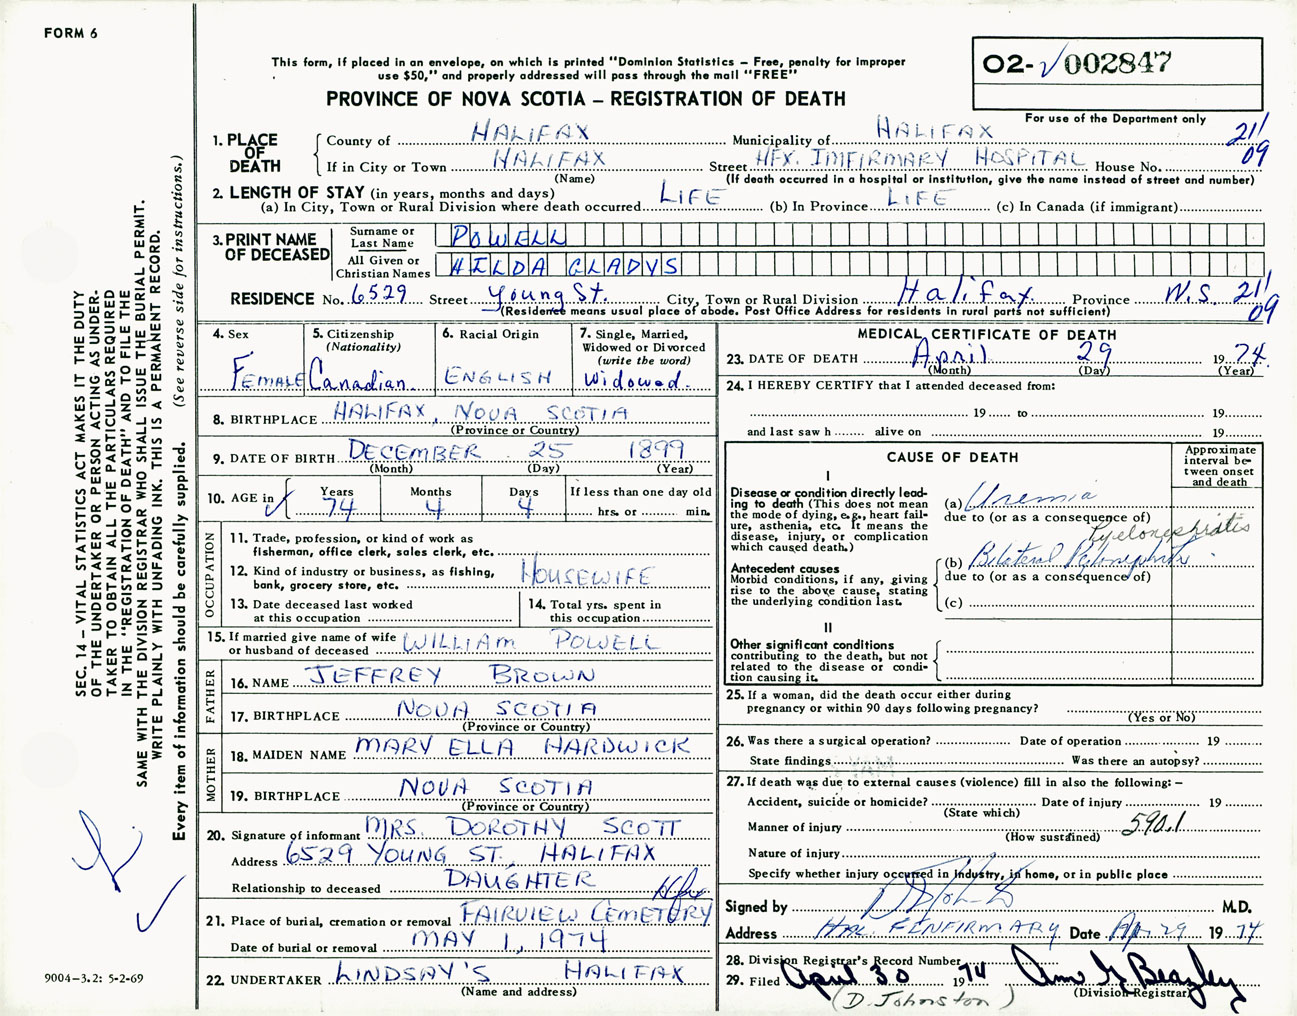 FORM 6
This form, if placed in an envelope, on which is printed "Dominion Statistics – Free, penalty for improper
use $50," and properly addressed will pass through the mail "FREE"
PROVINCE OF NOVA SCOTIA – REGISTRATION OF DEATH
O2-√002847
For use of the Department only
21'
09
1. PLACE OF DEATH
County of HALIFAX Municipality of HALIFAX
If in City or Town HALIFAX Street HFX. IMFIRMARY HOSPITAL House No.
(Name) (If death occurred in a hospital or institution, give the name instead of street and number)
2. LENGTH OF STAY (in years, months and days)
(a) In City, Town or Rural Division where death occurred LIFE (b) In Province LIFE (c) In Canada (if immigrant)
3. PRINT NAME OF DECEASED
Surname or Last Name POWELL
All Given or Christian Names HILDA GLADYS
RESIDENCE No. 6529 Street Young St. City, Town or Rural Division Halifax. Province N.S. 21'
(Residence means usual place of abode. Post Office Address for residents in rural parts not sufficient) 09
4. Sex
Female
5. Citizenship
(Nationality)
Canadian.
6. Racial Origin
ENGLISH
7. Single, Married,
Widowed or Divorced
(write the word)
Widowed.
8. BIRTHPLACE HALIFAX, NOVA SCOTIA
(Province or Country)
9. DATE OF BIRTH DECEMBER 25 1899
(Month) (Day) (Year)
10. AGE in √ Years 74 Months 4 Days 4 If less than one day old
hrs. or min.
OCCUPATION
11. Trade, profession, or kind of work as
fisherman, office clerk, sales clerk, etc.
12. Kind of industry or business, as fishing,
bank, grocery store, etc. HOUSEWIFE
13. Date deceased last worked
at this occupation
14. Total yrs. spent in
this occupation
15. If married give name of wife
or husband of deceased WILLIAM POWELL
FATHER
16. NAME JEFFREY BROWN
17. BIRTHPLACE NOVA SCOTIA
(Province or Country)
MOTHER
18. MAIDEN NAME MARY ELLA HARDWICK
19. BIRTHPLACE NOVA SCOTIA
(Province or Country)
20. Signature of informant MRS. DOROTHY SCOTT
Address 6529 YOUNG ST., HALIFAX
Relationship to deceased DAUGHTER
Hfx
21. Place of burial, cremation or removal FAIRVIEW CEMETERY
Date of burial or removal MAY 1, 1974
22. UNDERTAKER LINDSAY'S HALIFAX
(Name and address)
MEDICAL CERTIFICATE OF DEATH
23. DATE OF DEATH April 29 1974
(Month) (Day) (Year)
24. I HEREBY CERTIFY that I attended deceased from:
19 to 19
and last saw h alive on 19
CAUSE OF DEATH
Approximate
interval be-
tween onset
and death
I
Disease or condition directly lead-
ing to death (This does not mean
the mode of dying, e.g., heart fail-
ure, asthenia, etc. It means the
disease, injury, or complication
which caused death.)
(a) Uremia
due to (or as a consequence of)
Pyelonephritis
Antecedent causes
Morbid conditions, if any, giving
rise to the above cause, stating
the underlying condition last.
(b) Bilateral
due to (or as a consequence of)
(c)
II
Other significant conditions
contributing to the death, but not
related to the disease or condi-
tion causing it.
25. If a woman, did the death occur either during
pregnancy or within 90 days following pregnancy?
(Yes or No)
26. Was there a surgical operation? Date of operation 19
State findings Was there an autopsy?
27. If death was due to external causes (violence) fill in also the following: –
Accident, suicide or homicide? Date of injury 19
(State which)
Manner of injury 590.1
(How sustained)
Nature of injury
Specify whether injury occurred in industry, in home, or in public place
Signed by M.D.
Address Date Apr. 29 1974
28. Division Registrar's Record Number
29. Filed April 30 1974
(Division Registrar)
(D. Johnston)
SEC. 14 – VITAL STATISTICS ACT MAKES IT THE DUTY
OF THE UNDERTAKER OR PERSON ACTING AS UNDER-
TAKER TO OBTAIN ALL THE PARTICULARS REQUIRED
IN THE "REGISTRATION OF DEATH" AND TO FILE THE
SAME WITH THE DIVISION REGISTRAR WHO SHALL ISSUE THE BURIAL PERMIT.
WRITE PLAINLY WITH UNFADING INK. THIS IS A PERMANENT RECORD.
Every item of information should be carefully supplied. (See reverse side for instructions.)
9004–3.2: 5-2-69